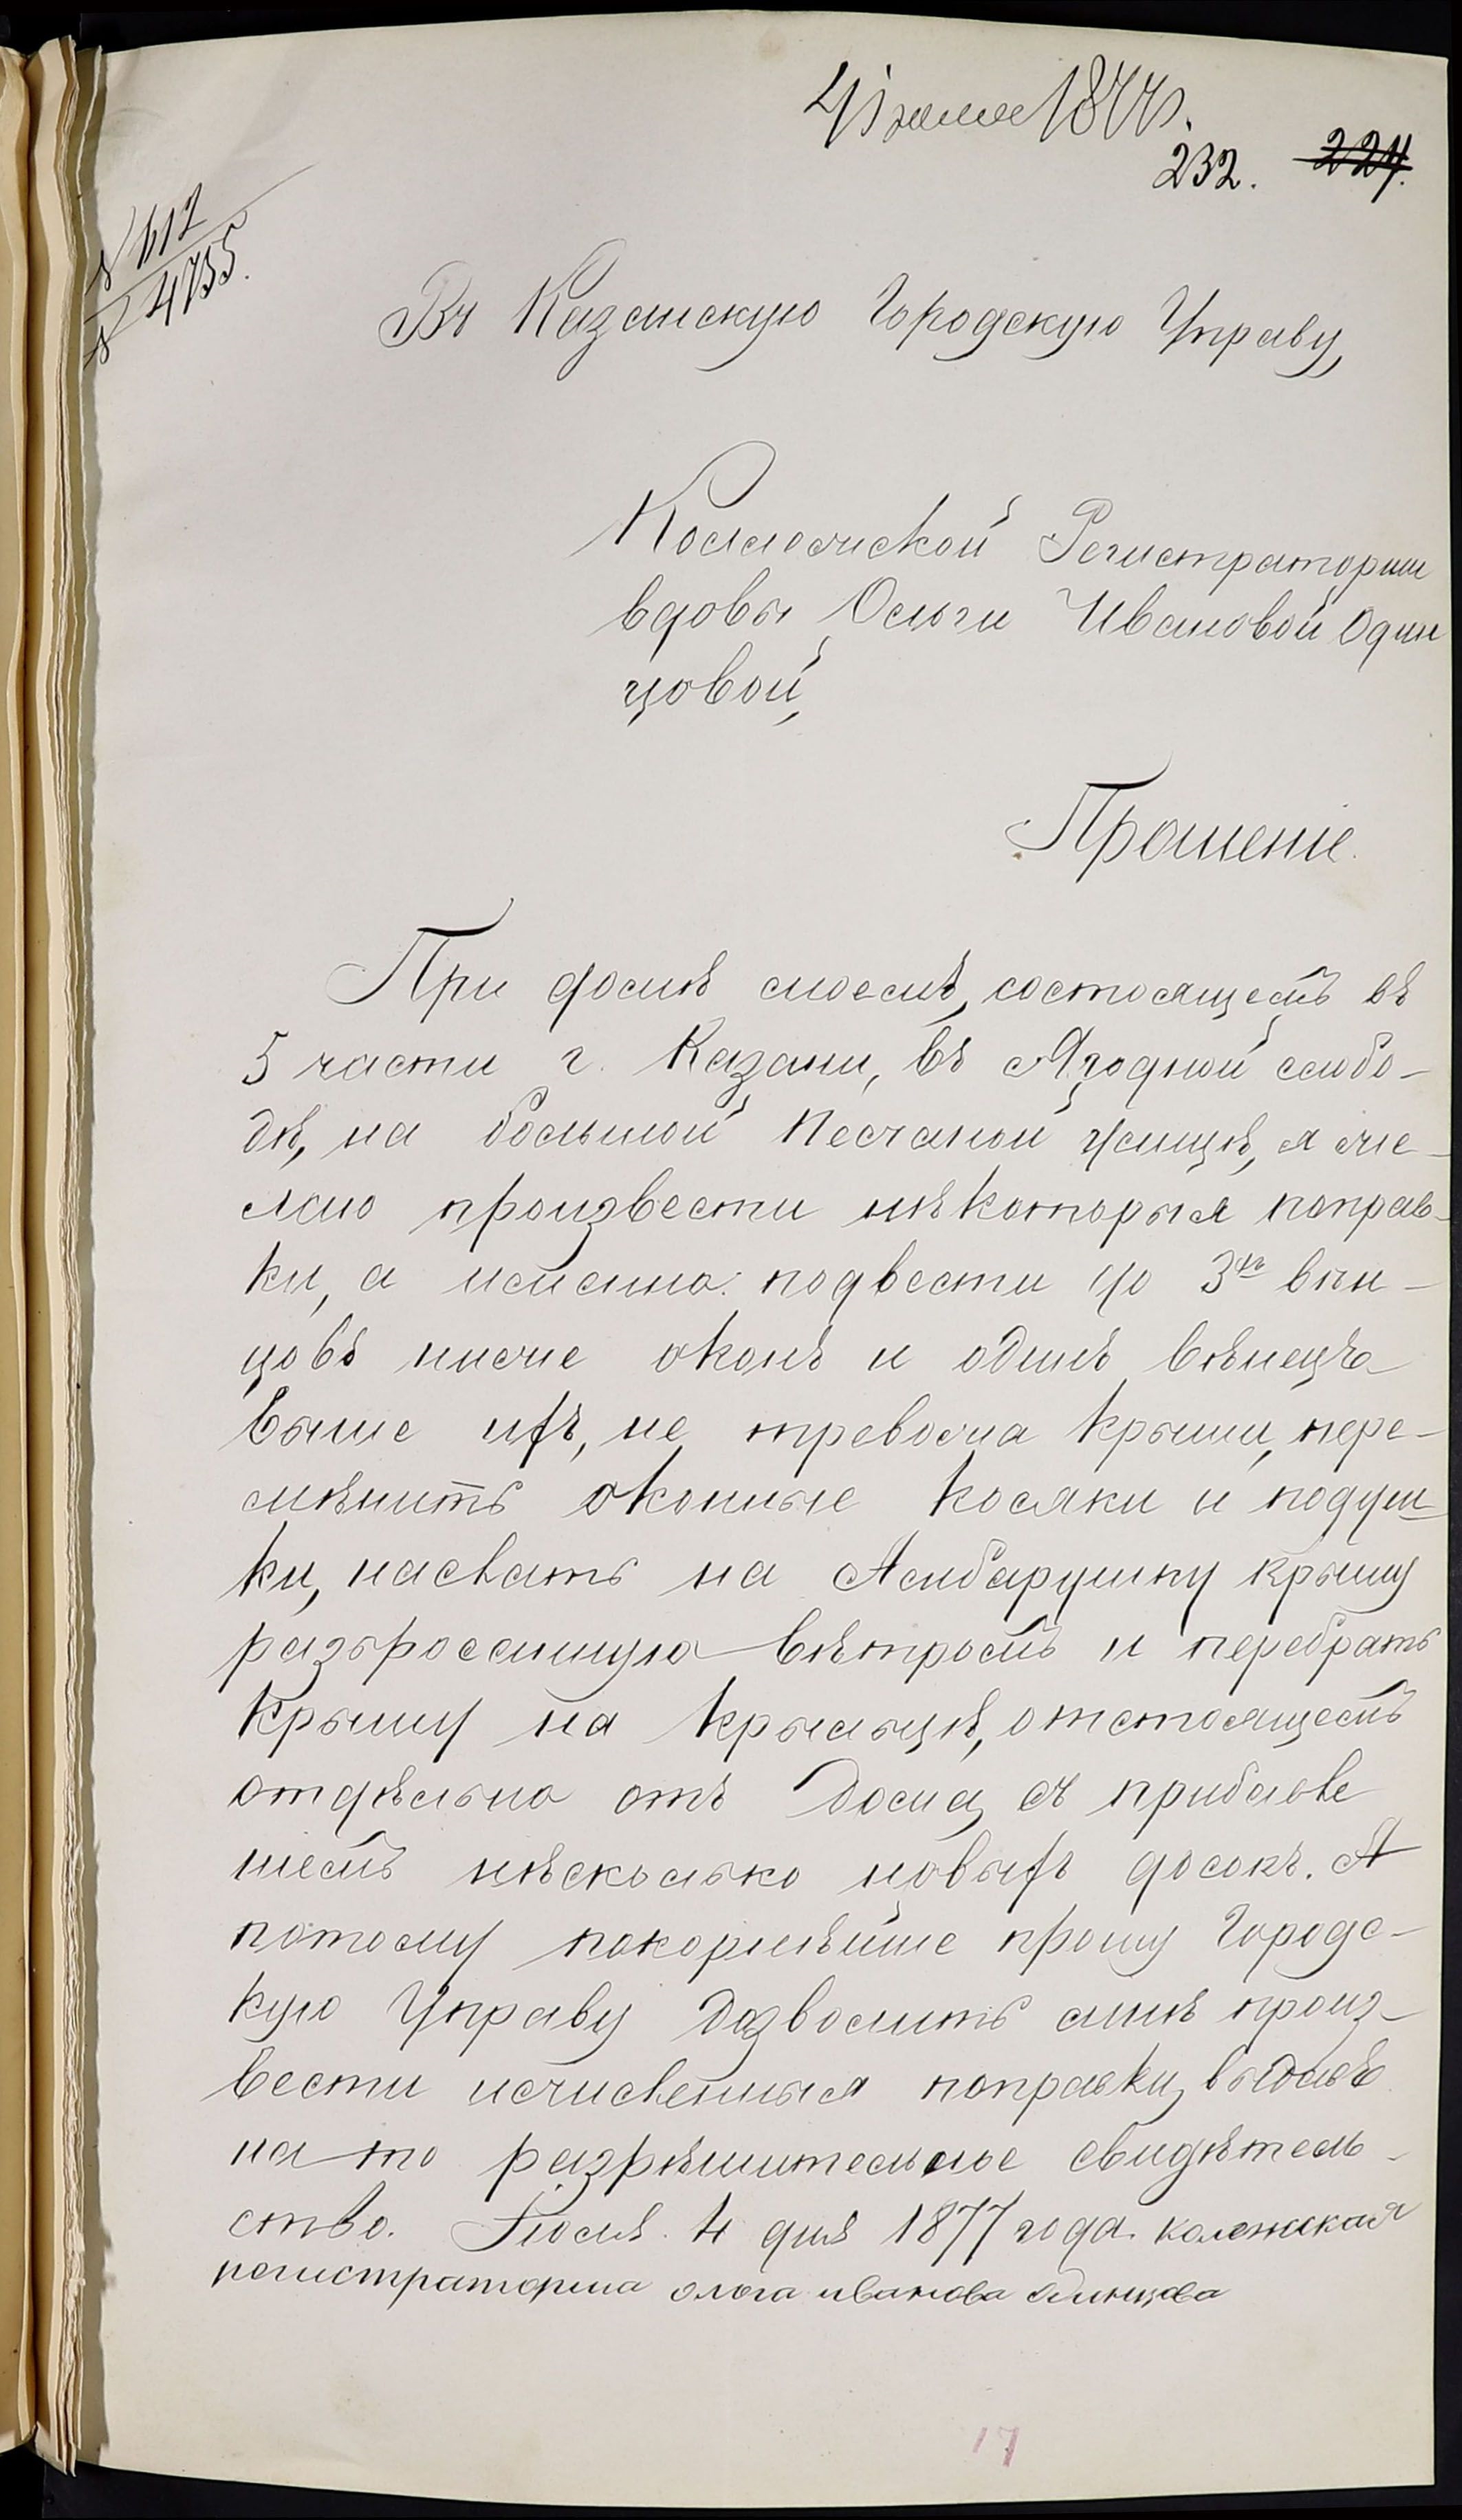 4 іюля 1877 г.
232. 224.
№ 612
№ 4755.
Въ Казанскую Городскую Управу,
Коллежской Регистраторши
вдовы Ольги Ивановой Один
цовой,
Прошеніе.
При домѣ моемъ, состоящемъ въ
5 части г. Казани, въ Ягодной слобо-
дѣ, на большой Песчаной улицѣ, я же-
лаю произвести нѣкоторыя поправ-
ки, а именно: подвести до 3хъ вѣн-
цовъ ниже оконъ и одинъ вѣнецъ
выше ихъ, не тревожа крыши, пере-
мѣнить оконные косяки и подуш
ки, наслать на Амбарушку крышу
разъросанную вѣтромъ и перебрать
крышу на крыльцѣ, отстоящемъ
отдѣльно отъ дома, съ прибавле
ніемъ нѣсколько новыхъ досокъ. А
потому покорнѣйше прошу Городс-
кую Управу дозволить мнѣ произ-
вести исчисленныя поправки, выдавъ
на то разрѣшительное свидѣтель-
ство. Іюля 4 дня 1877 года. колежская
регистраторша олга иванова Один��ова
17